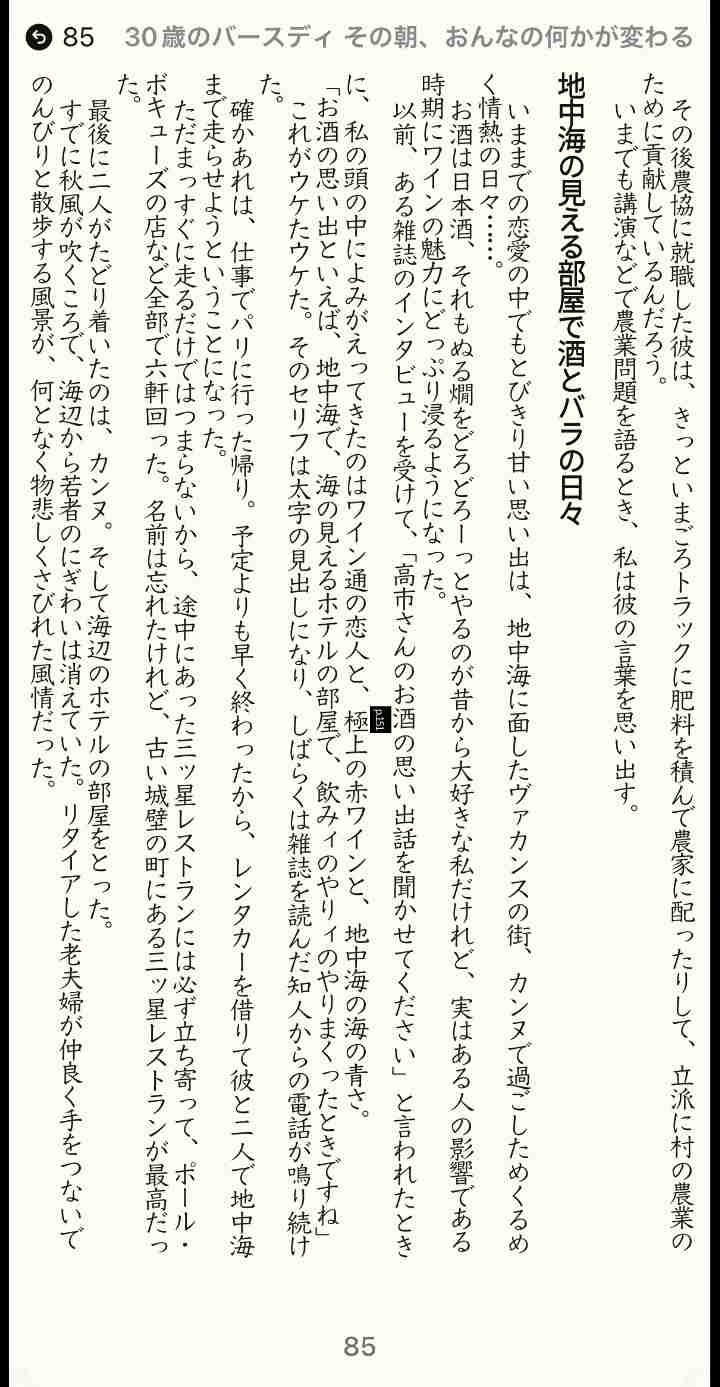 85 30歳のバースディ その朝、おんなの何かが変わる
その後農協に就職した彼は、きっといまごろトラックに肥料を積んで農家に配ったりして、立派に村の農業の
ために貢献しているんだろう。
いまでも講演などで農業問題を語るとき、私は彼の言葉を思い出す。
地中海の見える部屋で酒とバラの日々
いままでの恋愛の中でもとびきり甘い思い出は、地中海に面したヴァカンスの街、カンヌで過ごしためくるめ
く情熱の日々……。
お酒は日本酒、それもぬる燗をどろどろーっとやるのが昔から大好きな私だけれど、実はある人の影響である
時期にワインの魅力にどっぷり浸るようになった。
以前、ある雑誌のインタビューを受けて、「高市さんのお酒の思い出話を聞かせてください」と言われたとき
p.151
に、私の頭の中によみがえってきたのはワイン通の恋人と、極上の赤ワインと、地中海の海の青さ。
「お酒の思い出といえば、地中海で、海の見えるホテルの部屋で、飲みィのやりィのやりまくったときですね」
これがウケたウケた。そのセリフは太字の見出しになり、しばらくは雑誌を読んだ知人からの電話が鳴り続け
た。
確かあれは、仕事でパリに行った帰り。予定よりも早く終わったから、レンタカーを借りて彼と二人で地中海
まで走らせようということになった。
ただまっすぐに走るだけではつまらないから、途中にあった三ッ星レストランには必ず立ち寄って、ポール・
ボキューズの店など全部で六軒回った。名前は忘れたけれど、古い城壁の町にある三ッ星レストランが最高だっ
た。
最後に二人がたどり着いたのは、カンヌ。そして海辺のホテルの部屋をとった。
すでに秋風が吹くころで、海辺から若者のにぎわいは消えていた。リタイアした老夫婦が仲良く手をつないで
のんびりと散歩する風景が、何となく物悲しくさびれた風情だった。
85